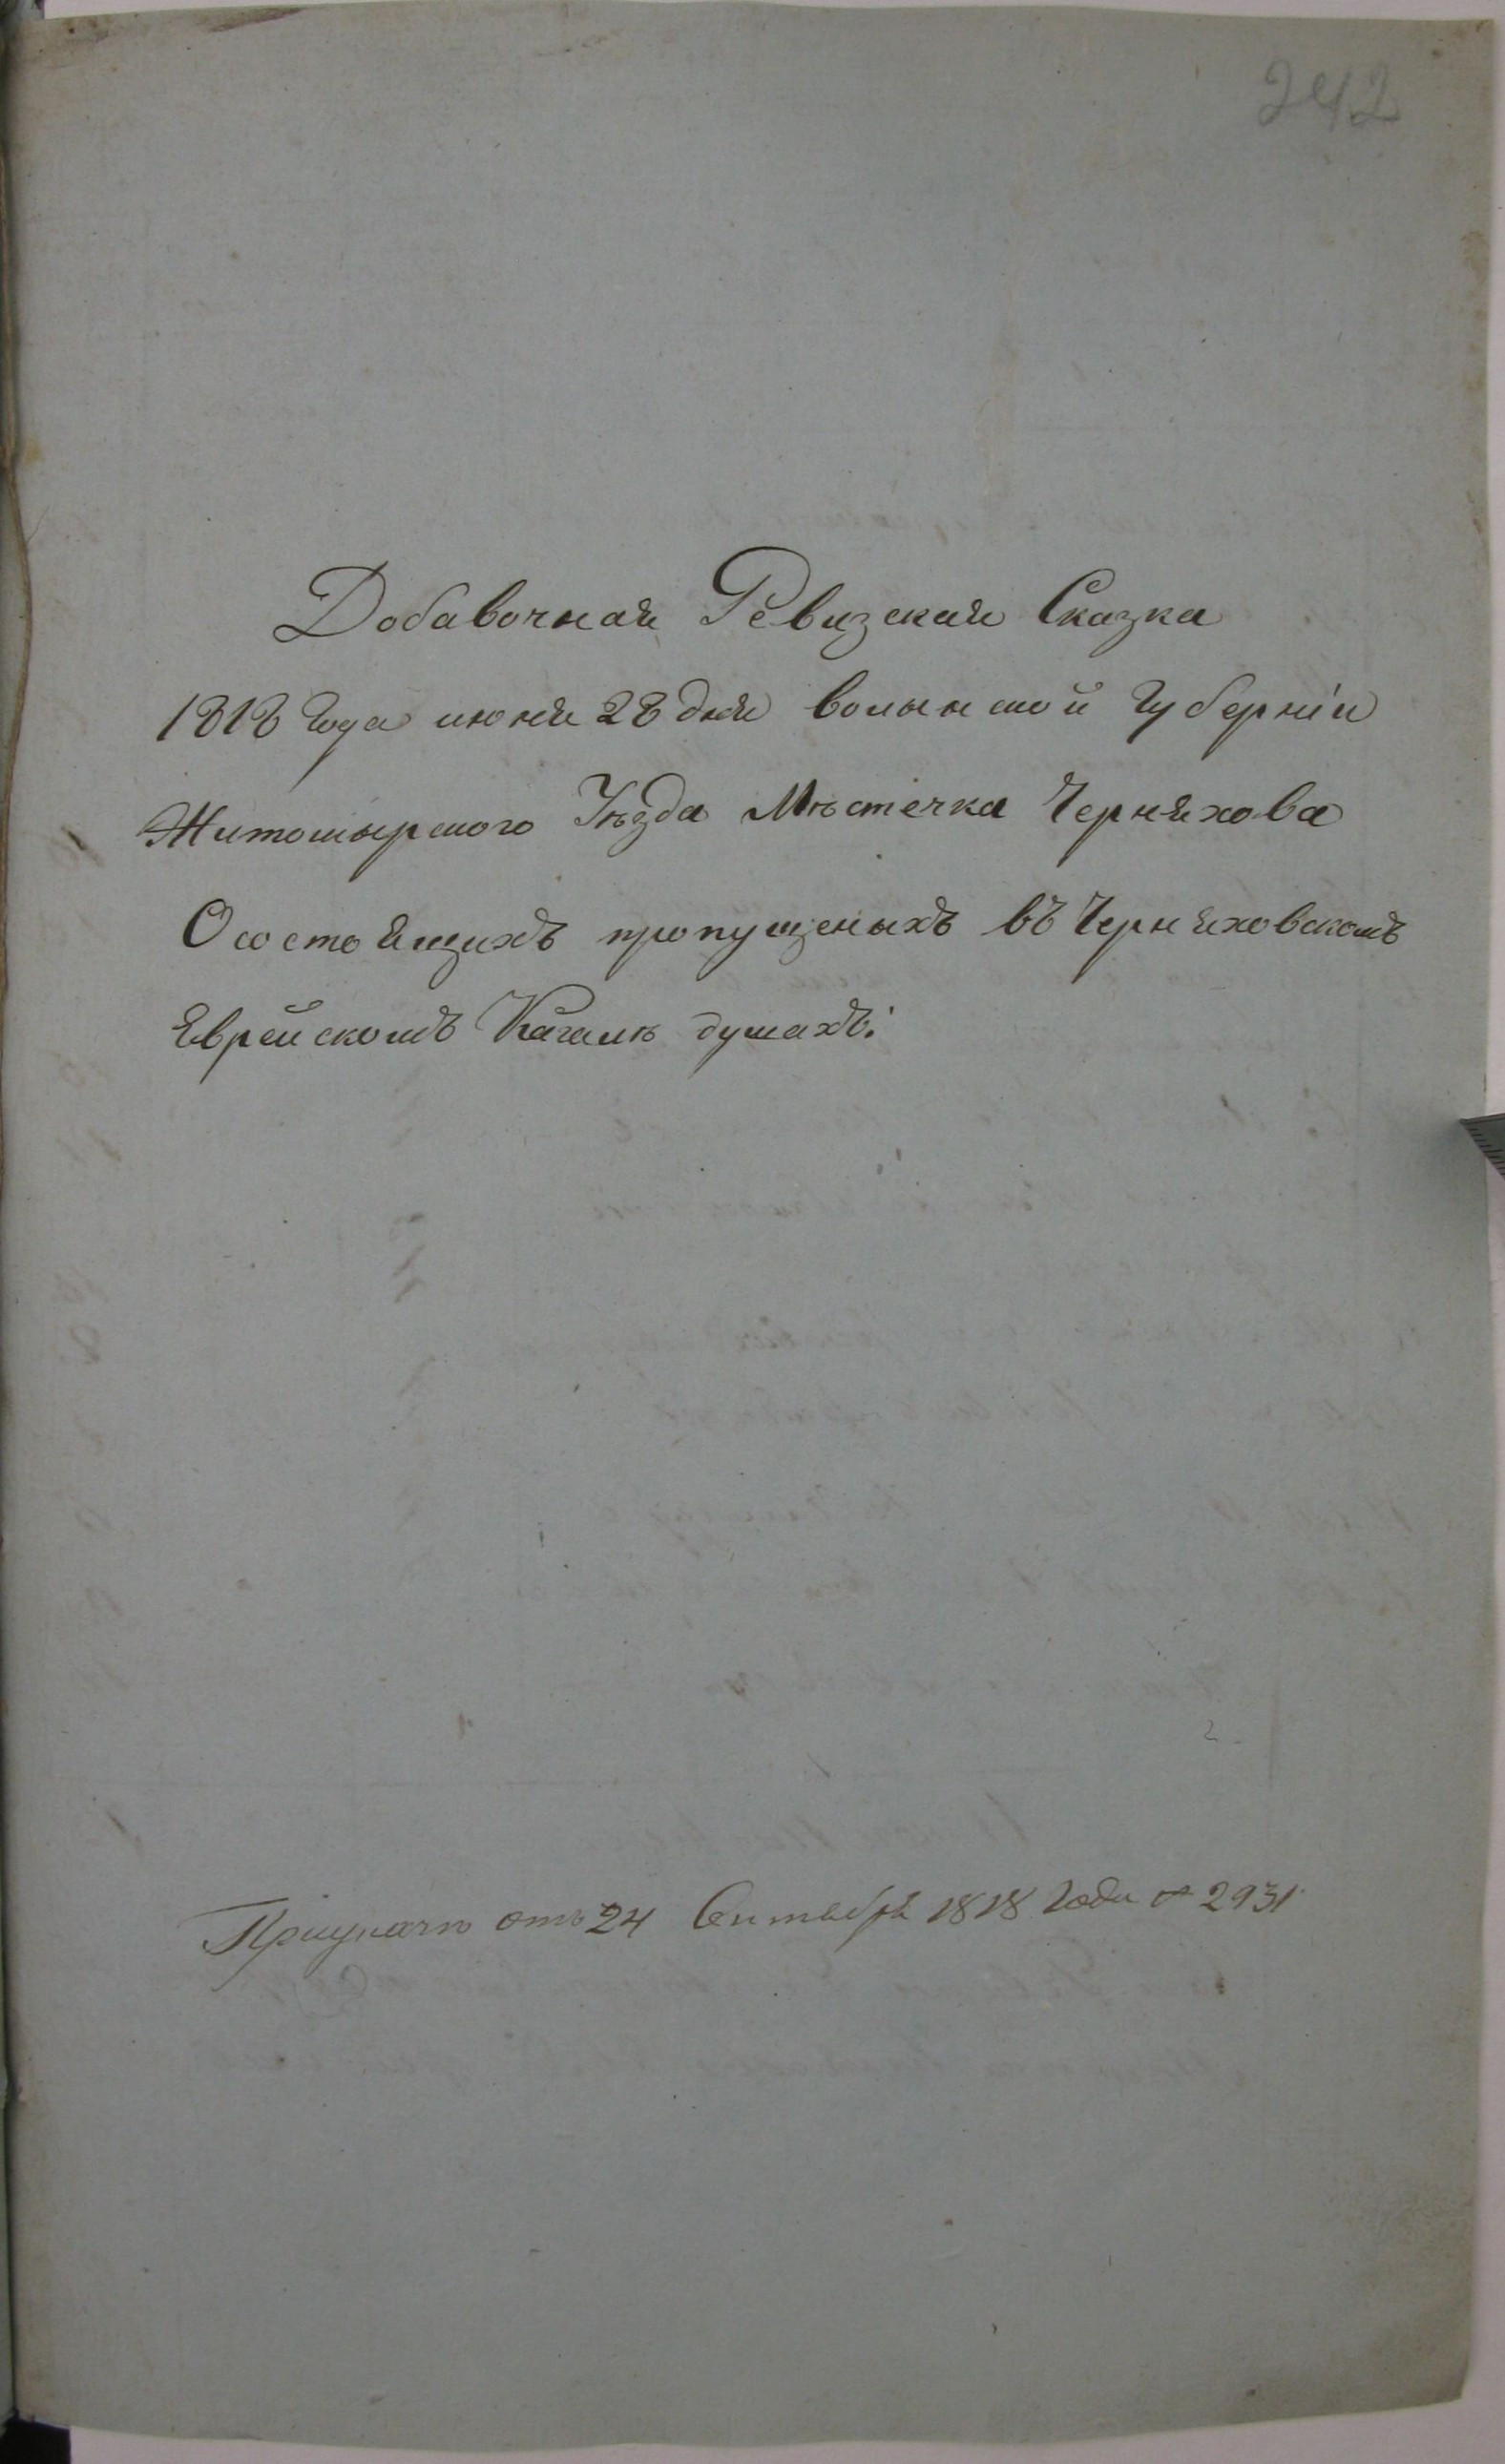 242
Добавочная Ревизская Сказка
1818 Года июня 28 дня волынской Губерніи
Житомырского Уѣзда Мѣстечка Черняхова
О состоящихъ пропущеныхъ въ Черняховскомъ
Еврейскомъ Кагалѣ душахъ:
отъ 24 Сентября 1818 Года № 2931